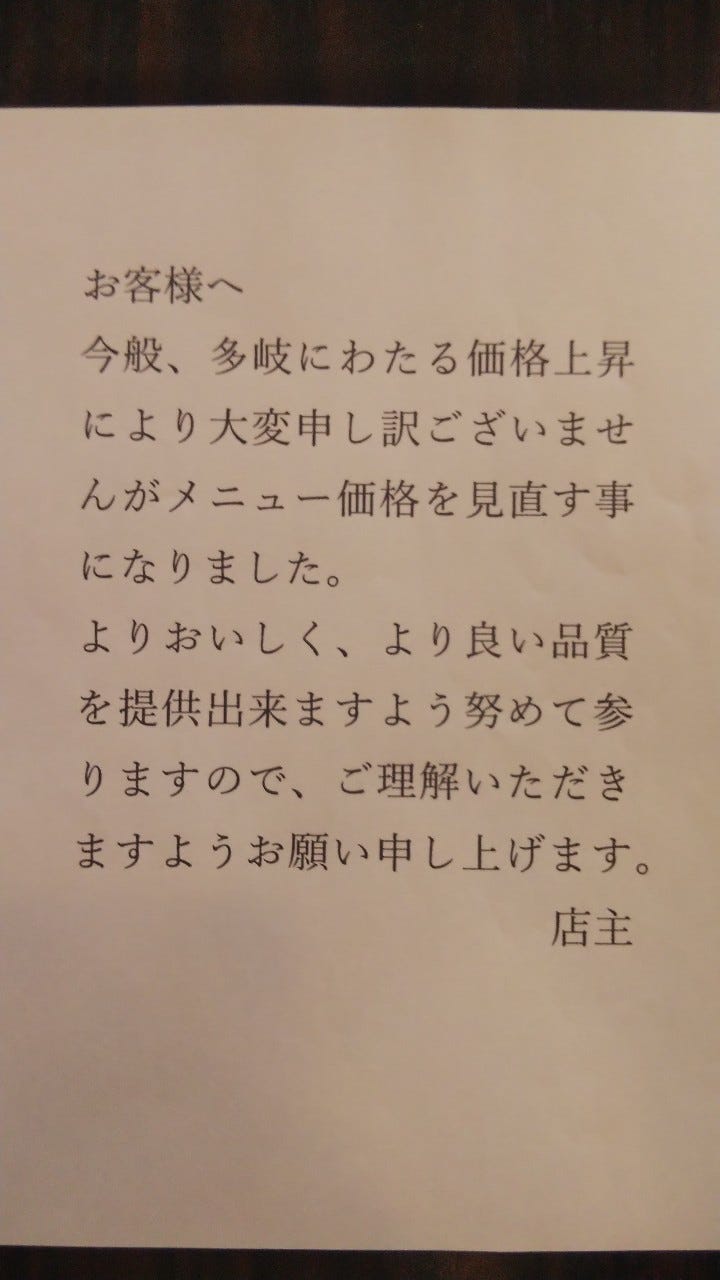 お客様へ
今般、多岐にわたる価格上昇
により大変申し訳ございませ
んがメニュー価格を見直す事
になりました。
よりおいしく、より良い品質
を提供出来ますよう努めて参
りますので、ご理解いただき
ますようお願い申し上げます。
店主